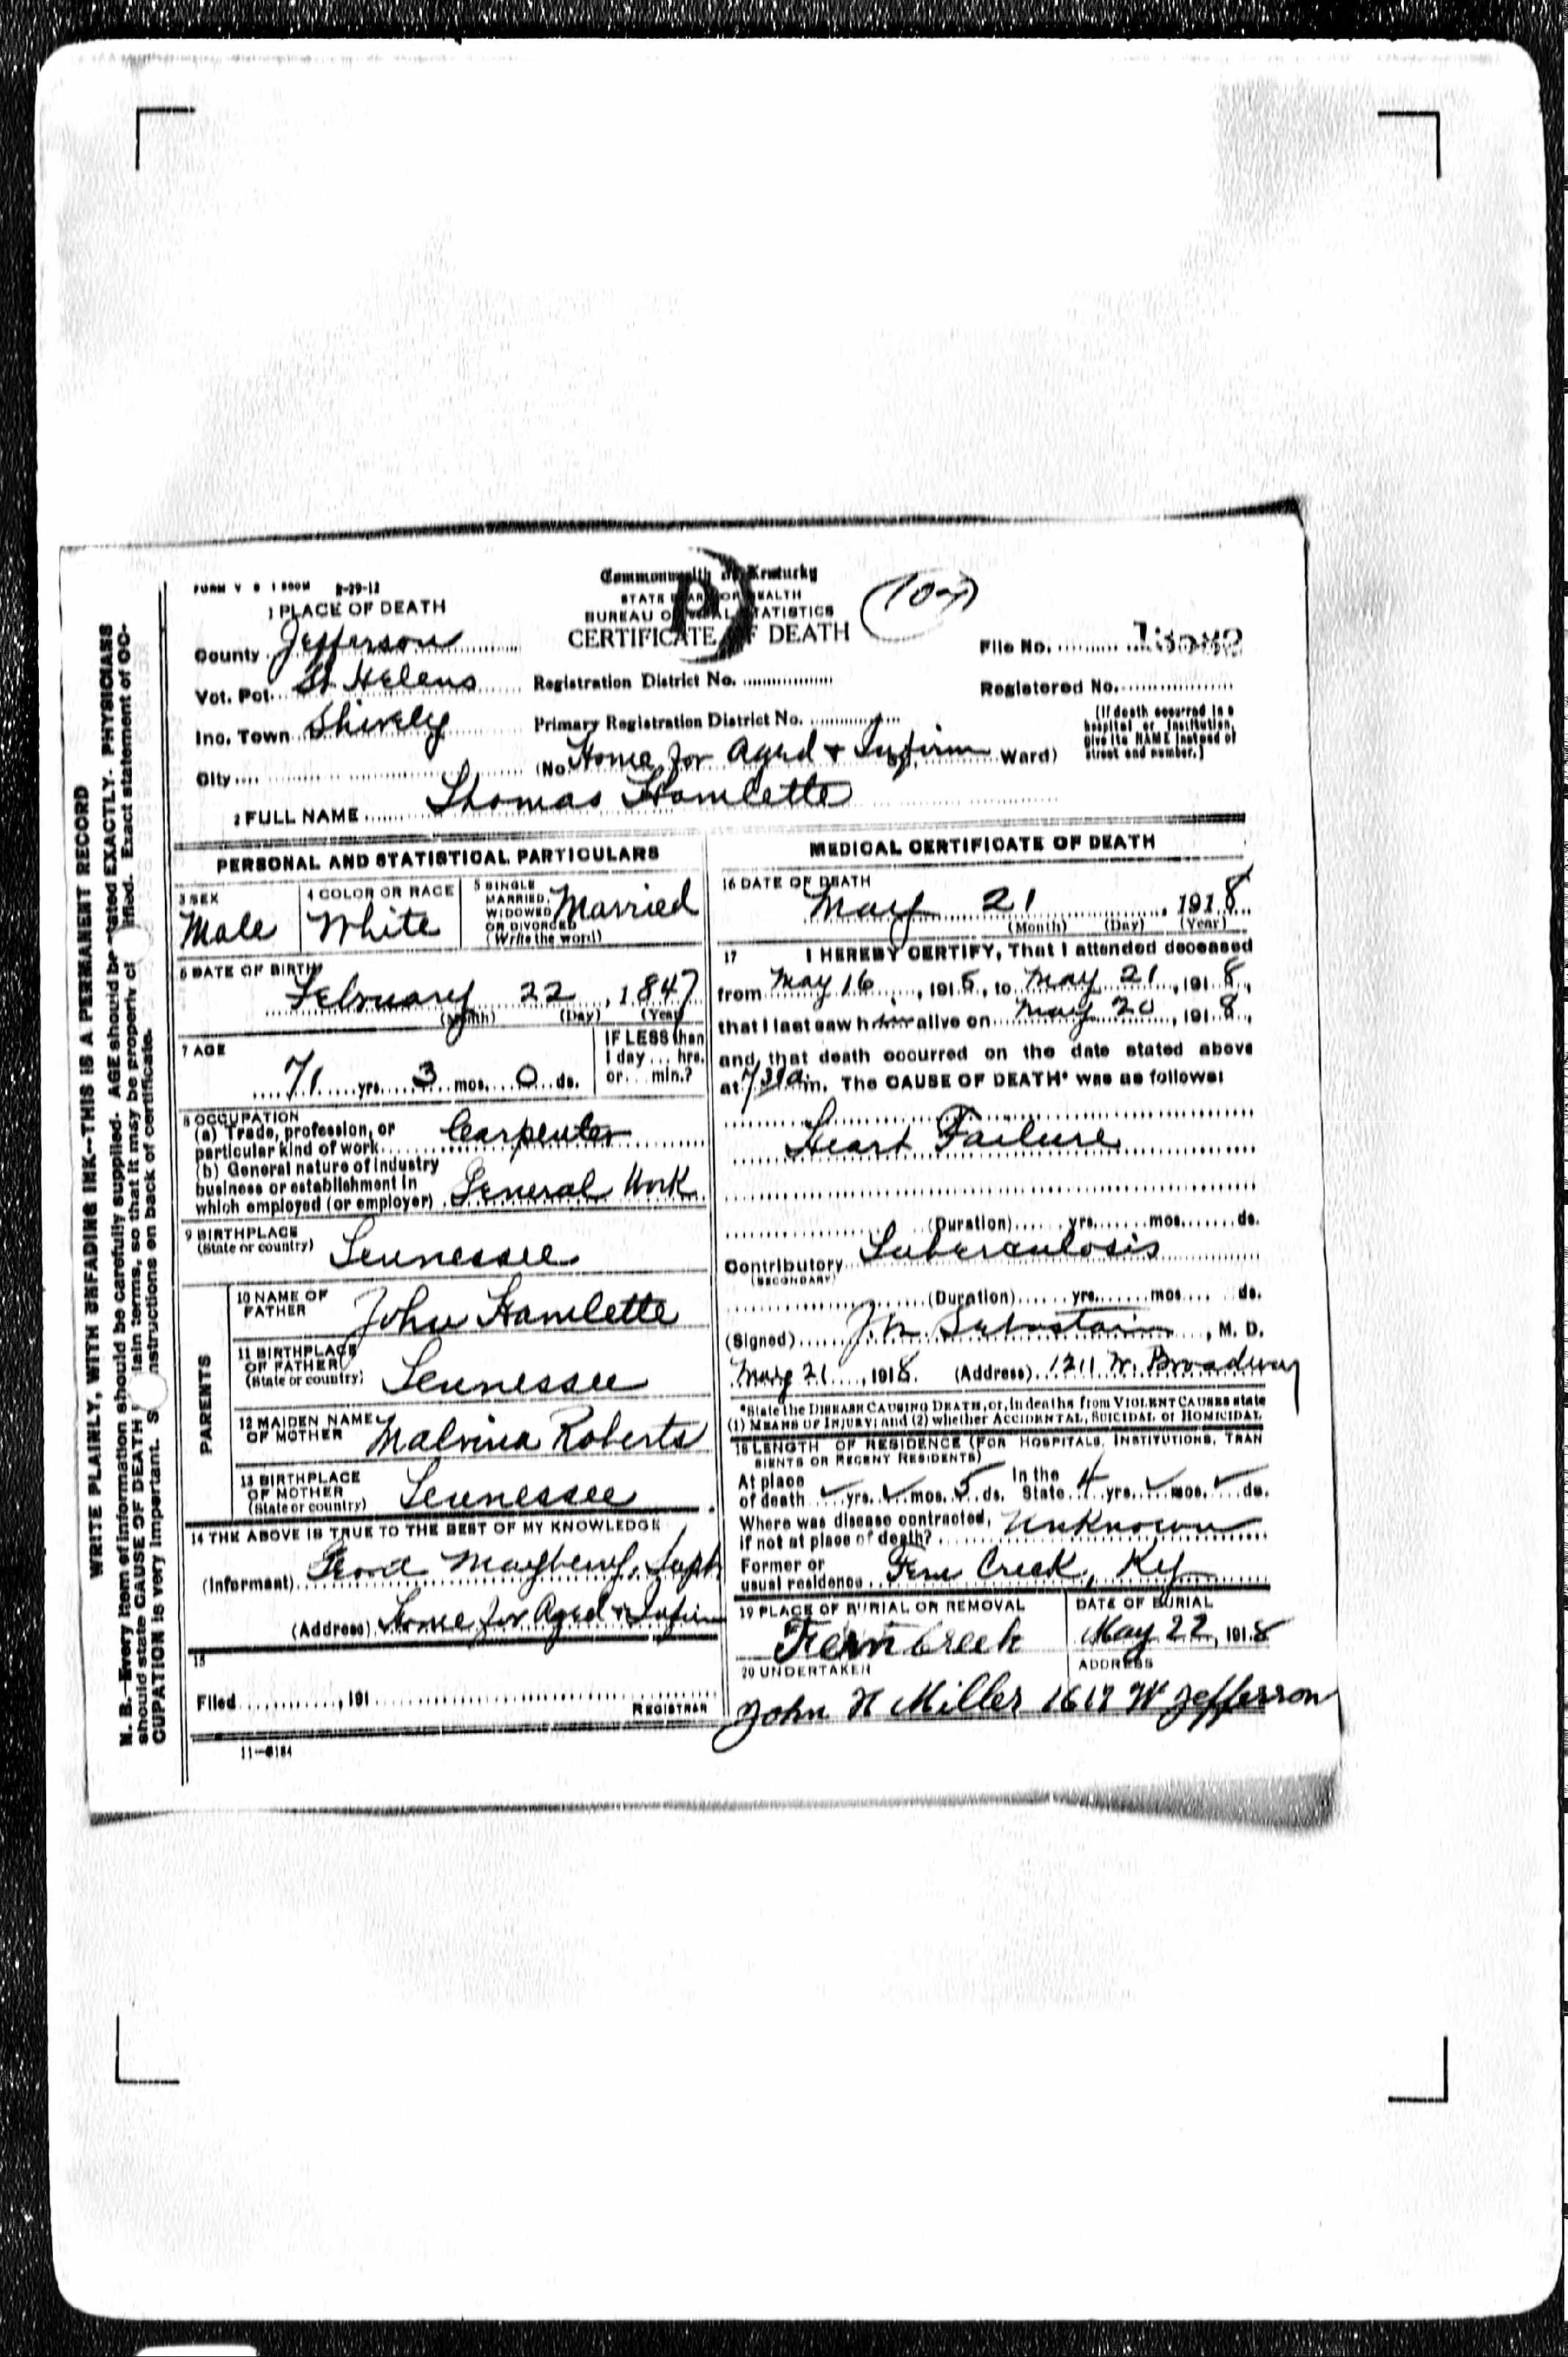 FORM V S 1 500M 2-29-12
1 PLACE OF DEATH
County Jefferson
Vot. Pct. St Helens
Inc. Town Shively
City
Commonwealth of Kentucky
STATE BOARD OF HEALTH
BUREAU OF VITAL STATISTICS
CERTIFICATE OF DEATH
File No.
Registration District No.
Registered No.
Primary Registration District No.
(No. Home for Aged & Infirm St. Ward)
(If death occurred in a
hospital or institution,
give its NAME instead of
street and number.)
2 FULL NAME Thomas Hamlette
PERSONAL AND STATISTICAL PARTICULARS
3 SEX
Male
4 COLOR OR RACE
White
5 SINGLE
MARRIED,
WIDOWED
OR DIVORCED
(Write the word)
Married
6 DATE OF BIRTH
February 22, 1847
(Month) (Day) (Year)
7 AGE
71 yrs. 3 mos. 0 ds.
IF LESS than
1 day ... hrs.
or ... min.?
8 OCCUPATION
(a) Trade, profession, or
particular kind of work Carpenter
(b) General nature of industry
business or establishment in
which employed (or employer) General Work
9 BIRTHPLACE
(State or country) Tennessee
PARENTS
10 NAME OF
FATHER John Hamlette
11 BIRTHPLACE
OF FATHER
(State or country) Tennessee
12 MAIDEN NAME
OF MOTHER Malvina Roberts
13 BIRTHPLACE
OF MOTHER
(State or country) Tennessee
14 THE ABOVE IS TRUE TO THE BEST OF MY KNOWLEDGE
(Informant) Mayberry, Supt
(Address) Home for Aged & Infirm
15
Filed , 191
REGISTRAR
11-5184
MEDICAL CERTIFICATE OF DEATH
16 DATE OF DEATH
May 21, 1918
(Month) (Day) (Year)
17 I HEREBY CERTIFY, That I attended deceased
from May 16, 1918, to May 21, 1918,
that I last saw him alive on May 20, 1918,
and that death occurred on the date stated above
at 7 30 a m. The CAUSE OF DEATH* was as follows:
Heart Failure
(Duration) yrs. mos. ds.
Contributory Tuberculosis
(SECONDARY)
(Duration) yrs. mos. ds.
(Signed) , M. D.
May 21, 1918. (Address) 1211 W. Broadway
*State the DISEASE CAUSING DEATH, or, in deaths from VIOLENT CAUSES state
(1) MEANS OF INJURY; and (2) whether ACCIDENTAL, SUICIDAL or HOMICIDAL
18 LENGTH OF RESIDENCE (FOR HOSPITALS, INSTITUTIONS, TRAN
SIENTS OR RECENT RESIDENTS)
At place
of death yrs. mos. 5 ds.
In the
State 4 yrs. mos. ds.
Where was disease contracted,
if not at place of death? Unknown
Former or
usual residence Fern Creek, Ky
19 PLACE OF BURIAL OR REMOVAL
Fern Creek
DATE OF BURIAL
May 22, 1918
20 UNDERTAKER
ADDRESS
John H Miller 1617 W Jefferson
WRITE PLAINLY, WITH UNFADING INK--THIS IS A PERMANENT RECORD
N. B.--Every item of information should be carefully supplied. AGE should be stated EXACTLY. PHYSICIANS
should state CAUSE OF DEATH lain terms, so that it may be properly cl ified. Exact statement of OC-
CUPATION is very important. S nstructions on back of certificate.